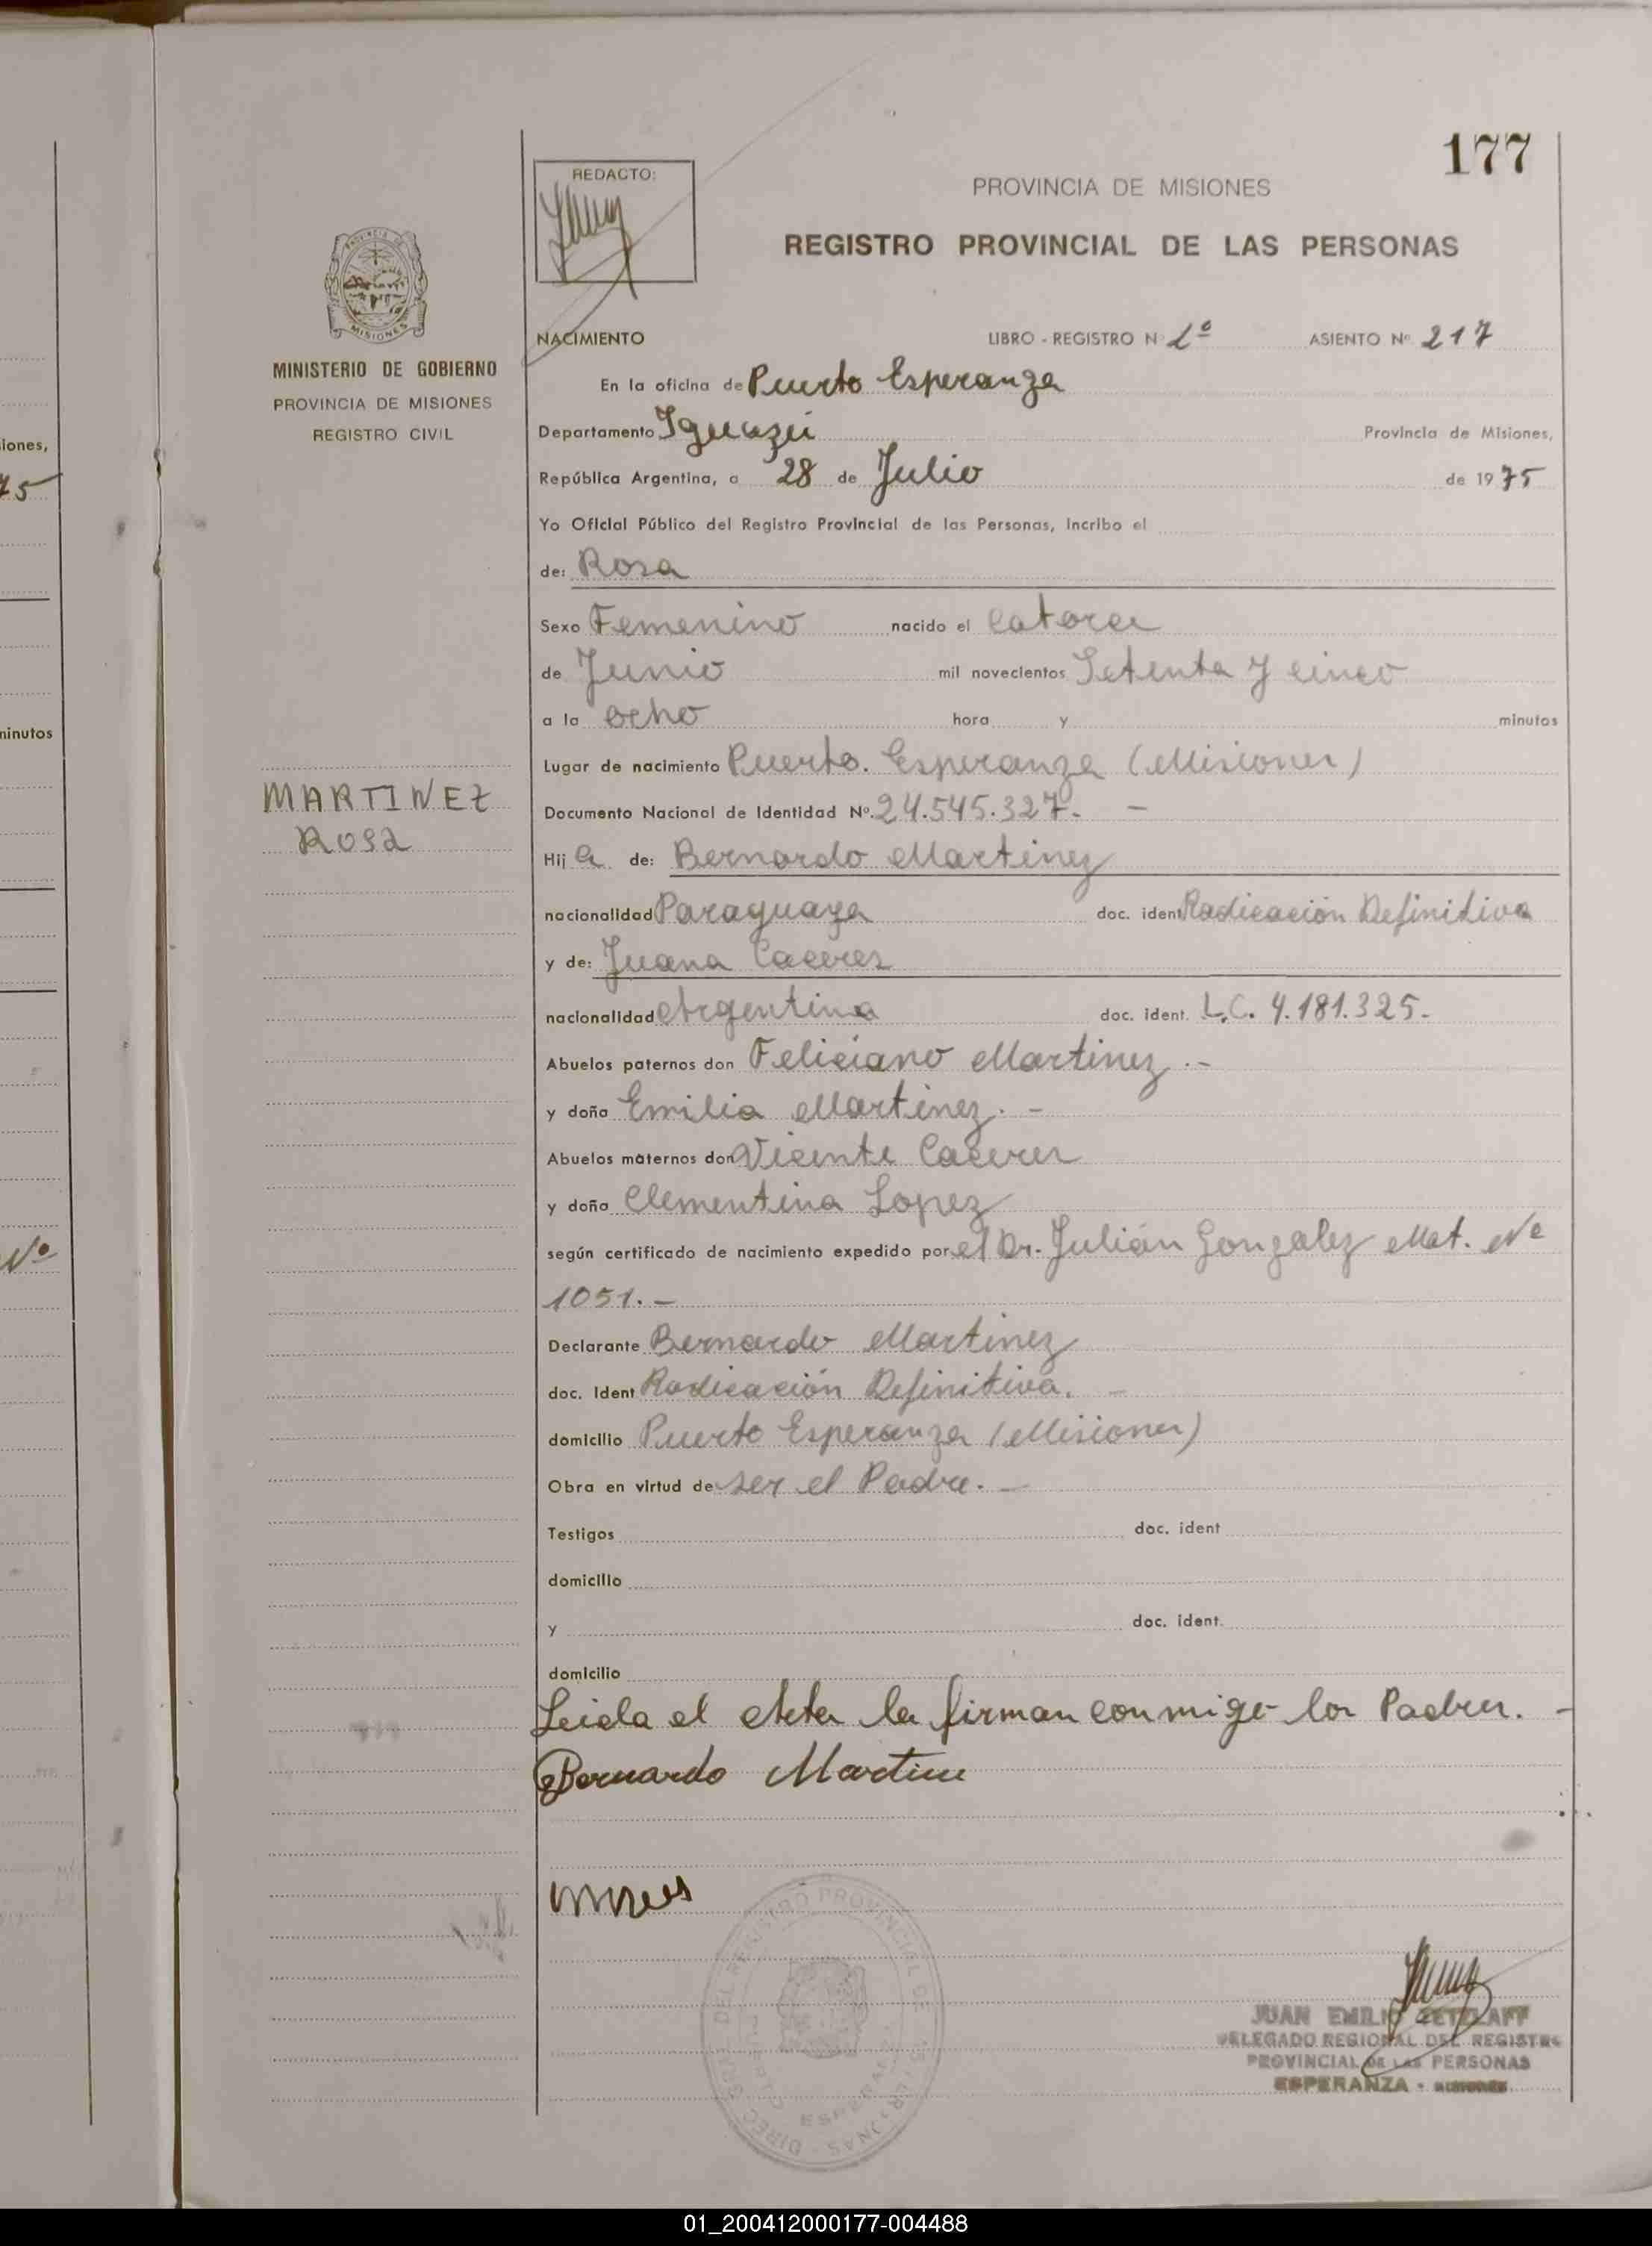 177
REDACTO:
PROVINCIA DE MISIONES
REGISTRO PROVINCIAL DE LAS PERSONAS
NACIMIENTO LIBRO - REGISTRO N 1º ASIENTO Nº 217
MINISTERIO DE GOBIERNO
PROVINCIA DE MISIONES
REGISTRO CIVIL
En la oficina de Puerto Esperanza
Departamento Iguazú Provincia de Misiones,
República Argentina, a 28 de Julio de 1975
Yo Oficial Público del Registro Provincial de las Personas, incribo el
de: Rosa
Sexo Femenino nacido el catorce
de Junio mil novecientos Setenta y cinco
a la ocho hora y minutos
Lugar de nacimiento Puerto. Esperanza (Misiones)
MARTINEZ
Rosa
Documento Nacional de Identidad Nº. 24.545.327. -
Hij a de: Bernardo Martinez
nacionalidad Paraguaya doc. ident Radicación Definitiva
y de: Juana Caceres
nacionalidad Argentina doc. ident. L.C. 4.181.325.-
Abuelos paternos don Feliciano Martinez .-
y doña Emilia Martinez. -
Abuelos maternos don Vicente Caceres
y doña Clementina Lopez
según certificado de nacimiento expedido por el Dr. Julián Gonzalez Mat. Nº
1051. -
Declarante Bernardo Martinez
doc. Ident Radicación Definitiva. -
domicilio Puerto Esperanza (Misiones)
Obra en virtud de ser el Padre. -
Testigos doc. ident
domicilio
y doc. ident.
domicilio
Leida el Acta la firman conmigo los Padres. -
Bernardo Martine
JUAN EMILIO ZETZLAFF
DELEGADO REGIONAL DEL REGISTRO
PROVINCIAL DE LAS PERSONAS
ESPERANZA - MISIONES
iones,
75
minutos
Nº
01_200412000177-004488